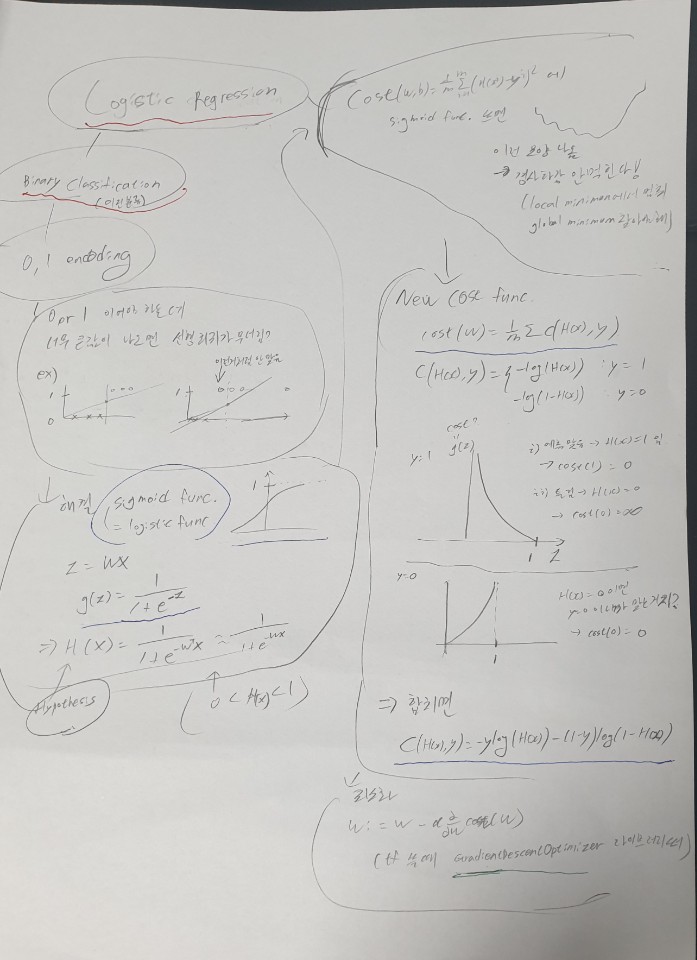 Logistic Regression
Binary Classification
(이진분류)
0, 1 encoding
0 or 1 이어야 하는데
너무 큰값이 나오면 선형회귀가 무너짐?
ex)
이전거처럼 안 맞음
1
0
1
해결
sigmoid func.
= logistic func
1
z = WX
g(z) = 1 / (1 + e^-z)
⇒ H(X) = 1 / (1 + e^-Wᵀx) ≈ 1 / (1 + e^-WX)
Hypothesis
(0 < H(x) < 1)
Cost(w,b) = 1/m Σ (H(x) - y)² 에
sigmoid func. 쓰면
이런 모양 나옴
→ 경사하강 안먹힌다
(local minimum에서 멈춰
global minimum
New cost func.
cost(W) = 1/m Σ C(H(x), y)
C(H(x), y) = { -log(H(x)) : y = 1
-log(1-H(x)) y = 0
y=1
cost?
g(z)
1
z
i) 예측 맞음 → H(x)=1 일
→ cost(1) = 0
ii) 틀림 → H(x)=0
→ cost(0) = ∞
y=0
1
H(x) = 0 이면
→ cost(0) = 0
⇒ 합치면
C(H(x),y) = -ylog(H(x)) - (1-y)log(1-H(x))
최소화
W := W - α ∂/∂W cost(W)
GradientDescentOptimizer 라이브러리